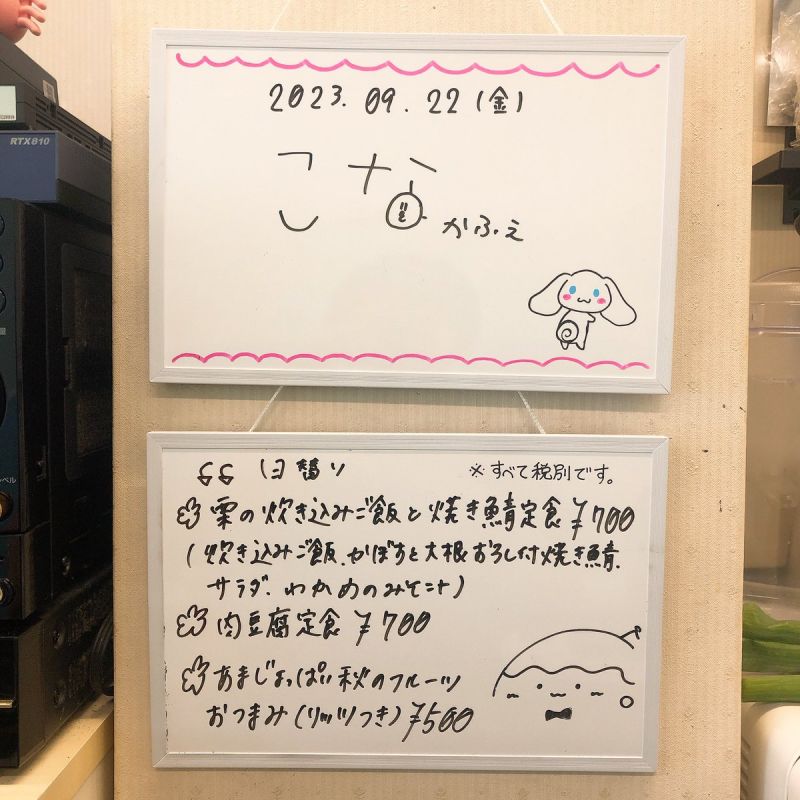 RTX810
2023.09.22(金)
こな
かふぇ
日替り
※すべて税別です。
栗の炊き込みご飯と焼き鯖定食 ¥700
(炊き込みご飯、かぼすと大根おろし付焼き鯖、
サラダ、わかめのみそ汁)
肉豆腐定食 ¥700
あまじょっぱい秋のフルーツ
おつまみ(リッツつき) ¥500